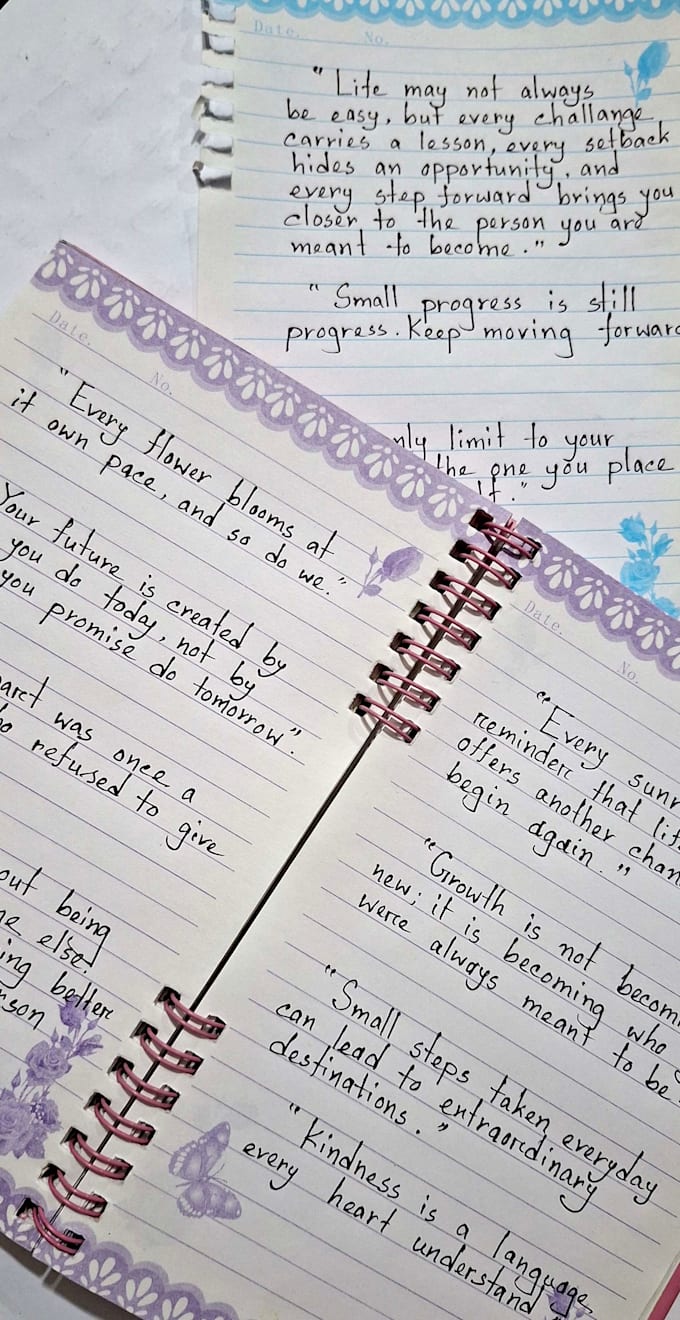 Date. No.
"Life may not always
be easy, but every challange
carries a lesson, every setback
hides an opportunity, and
every step forward brings you
closer to the person you are
meant to become."
"Small progress is still
progress. Keep moving forward
limit to your
the one you place
Date. No.
"Every flower blooms at
it own pace, and so do we."
Your future is created by
you do today, not by
you promise do tomorrow".
was once a
refused to give
out being
else.
better
Date. No.
"Every
reminder that
offers another
begin again."
"Growth is not
new; it is becoming who
were always meant to be
"Small steps taken everyday
can lead to extraordinary
destinations."
"Kindness is a language
every heart understand